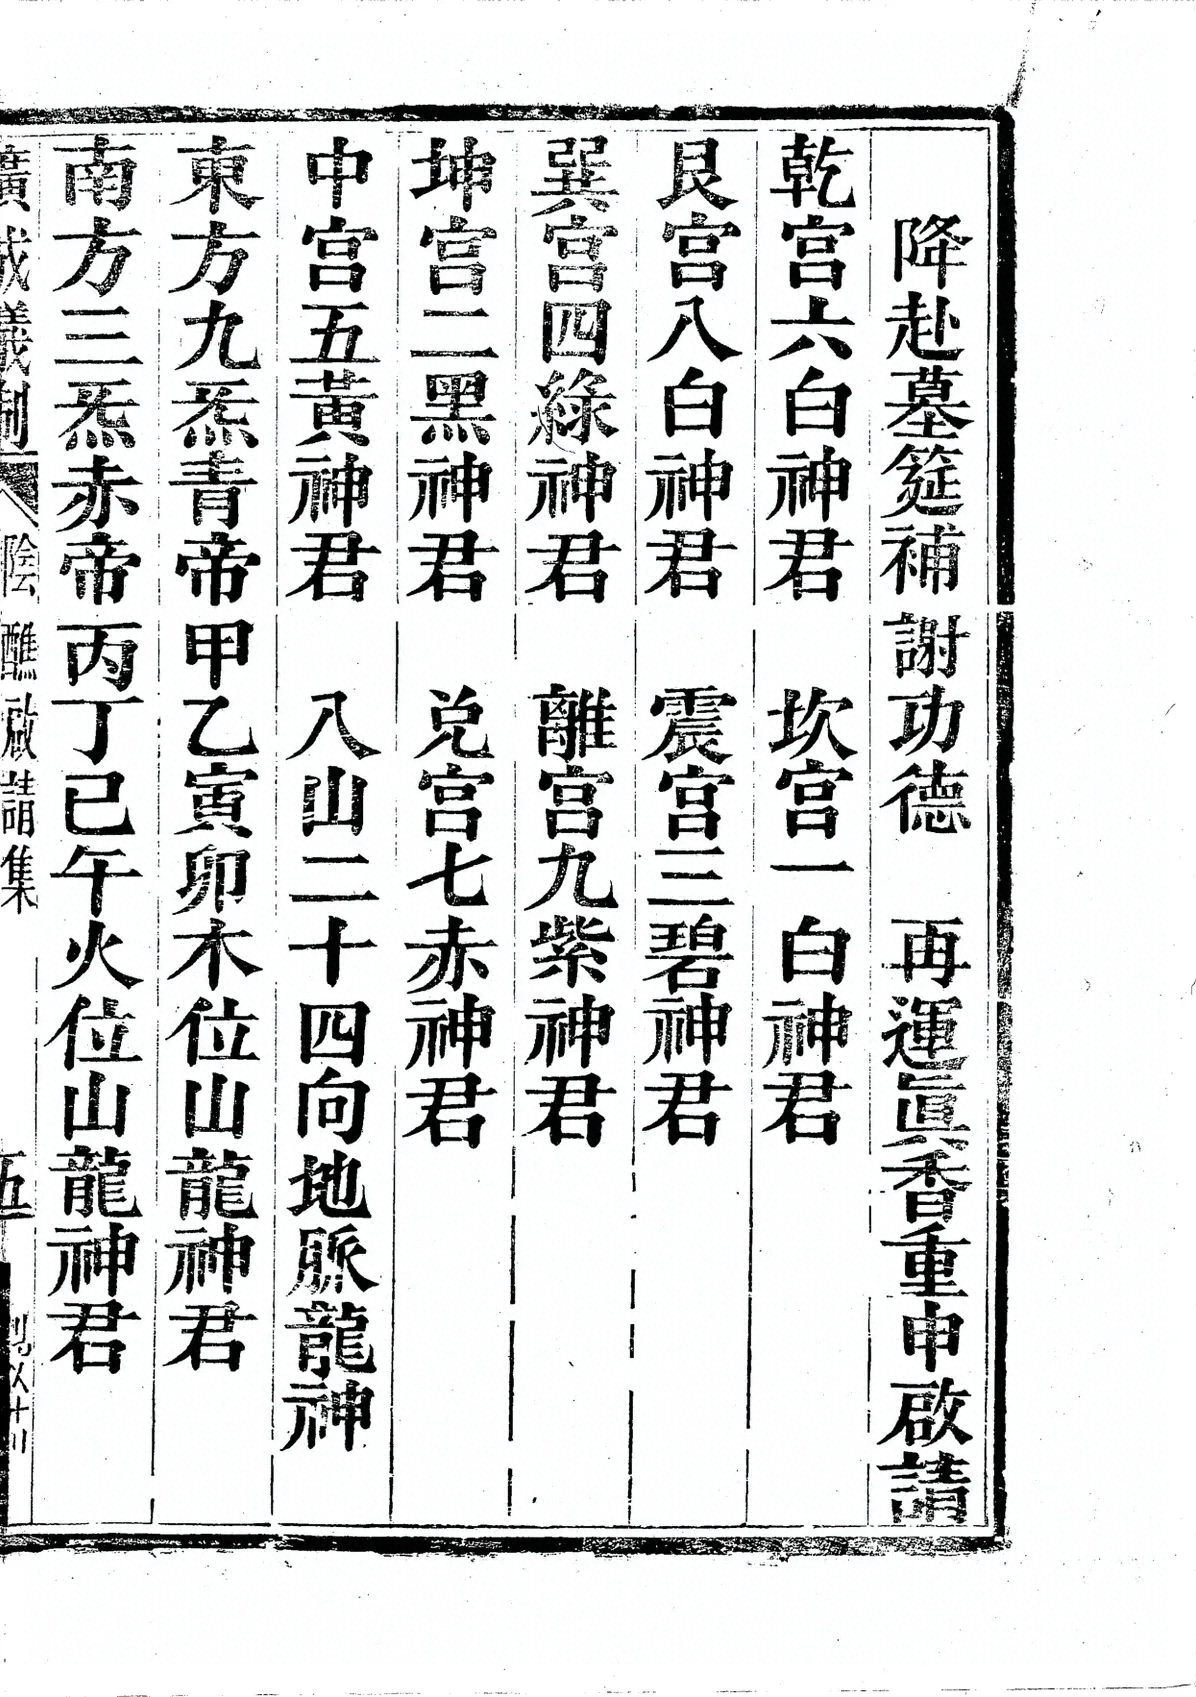 降赴墓筵補謝功德　再運眞香重申啟請
乾宮六白神君　坎宮一白神君
艮宮八白神君　震宮三碧神君
巽宮四綠神君　離宮九紫神君
坤宮二黑神君　兌宮七赤神君
中宮五黃神君　八山二十四向地脈龍神
東方九炁青帝甲乙寅卯木位山龍神君
南方三炁赤帝丙丁巳午火位山龍神君
廣成儀制　陰醮啟請集　五